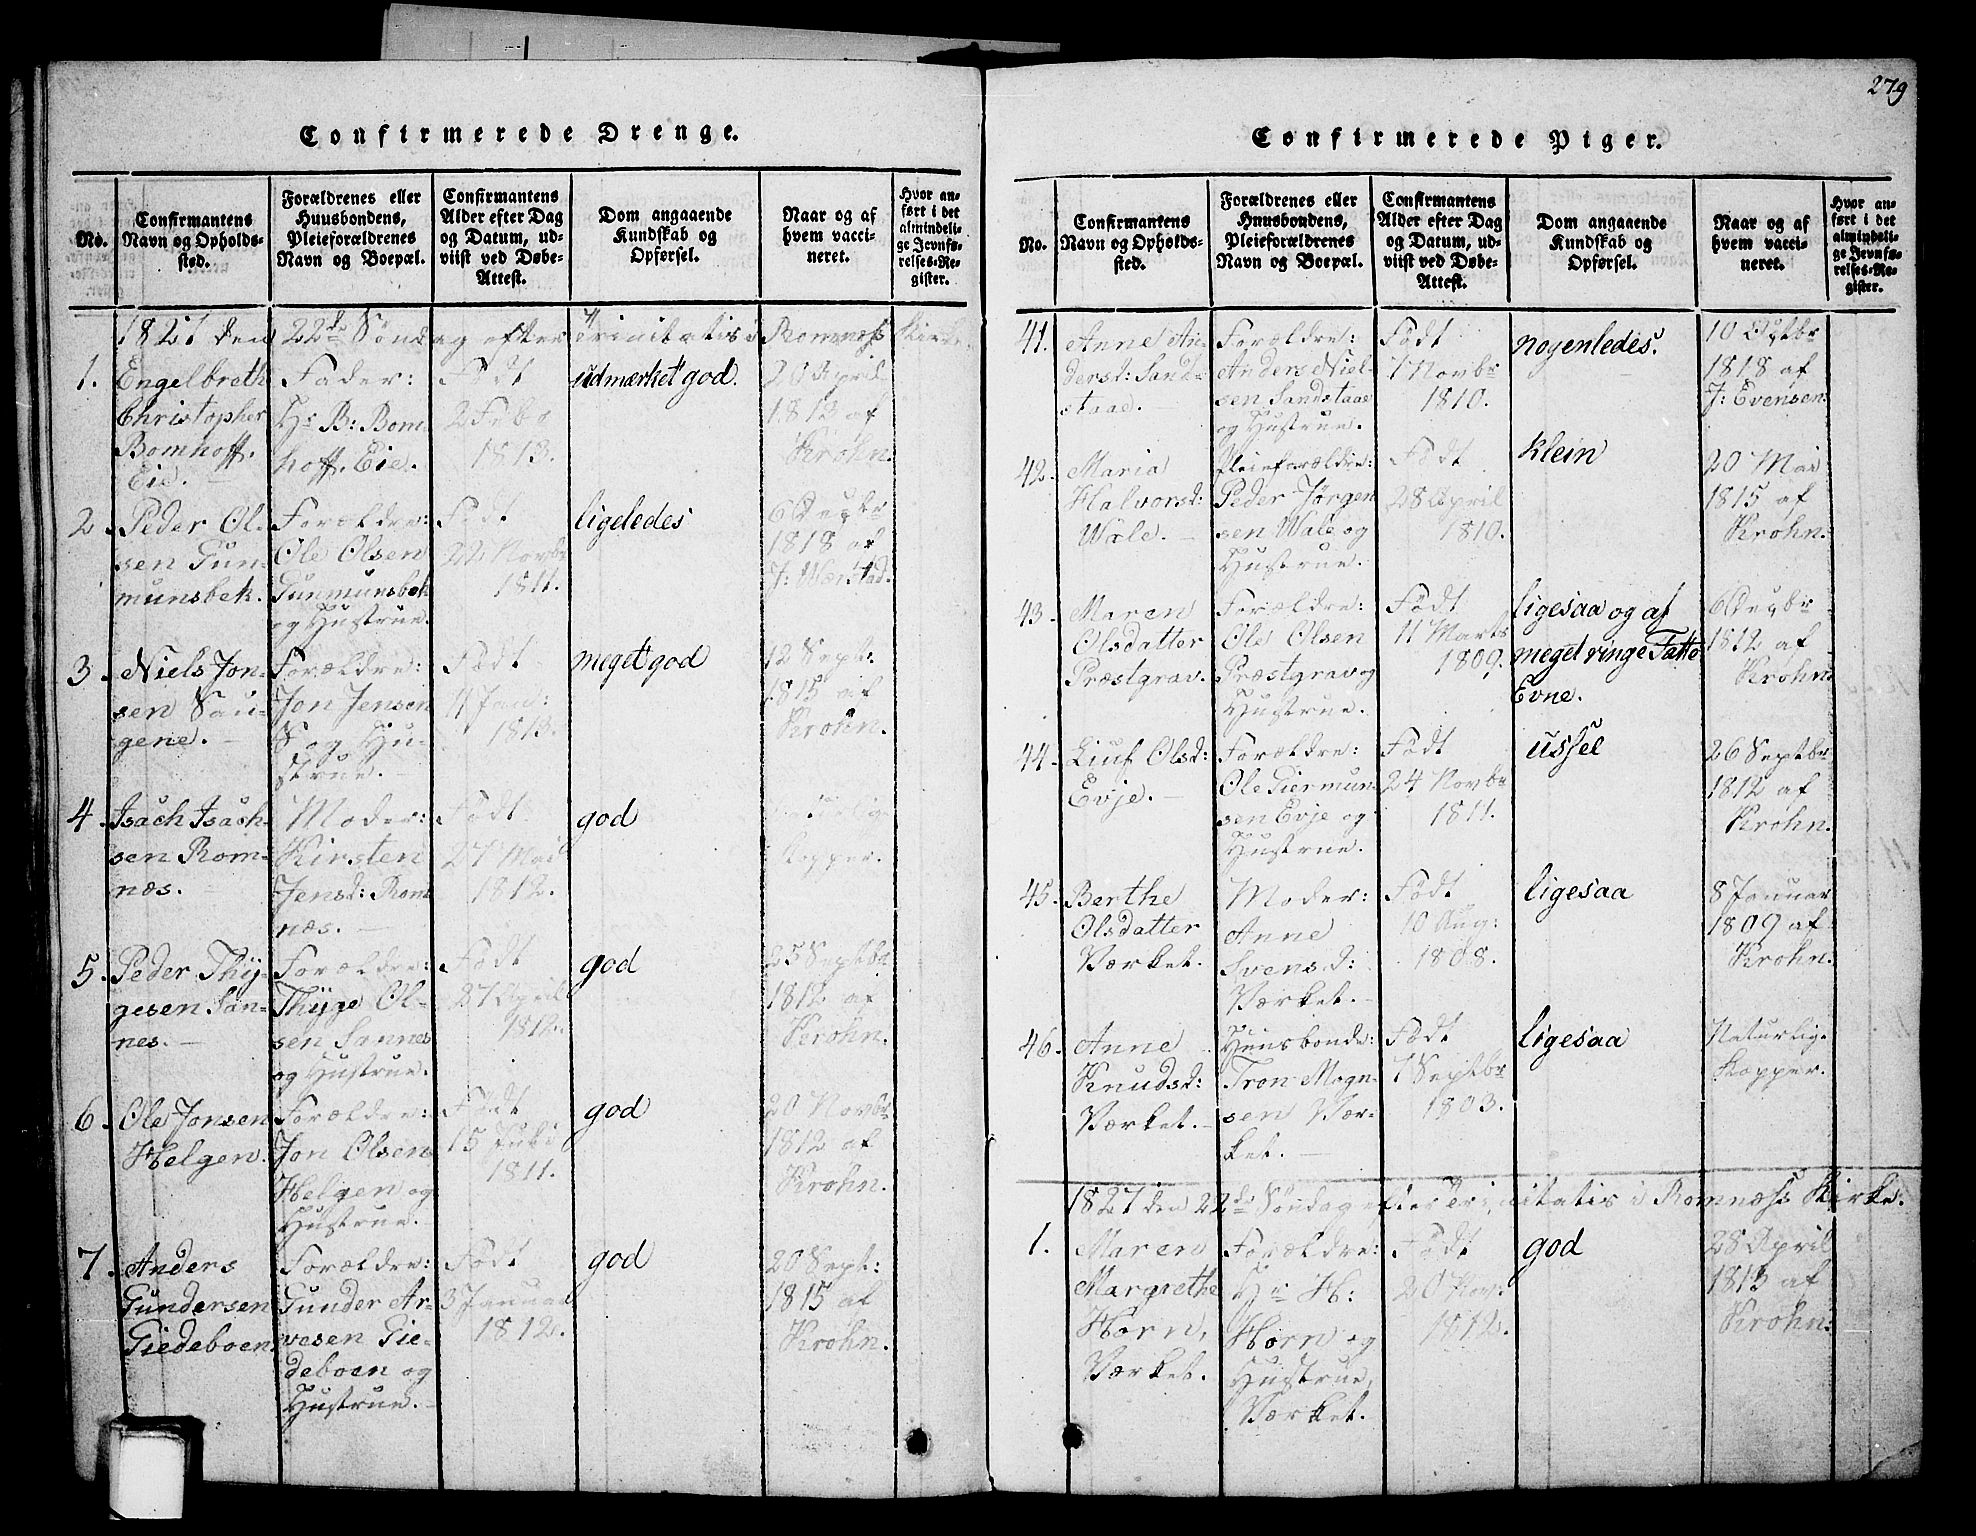 279
Confirmerede Drenge.
No.
Confirmantens
Navn og Opholds-
sted.
Forældrenes eller
Huusbondens,
Pleieforældrenes
Navn og Boepæl.
Confirmantens
Alder efter Dag
og Datum, ud-
viist ved Døbe-
Attest.
Dom angaaende
Kundskab og
Opførsel.
Naar og af
hvem vacci-
neret.
Hvor an-
ført i det
almindeli-
ge Jevnfø-
relses-Re-
gister.
1827 den 22de Søndag efter Trinitatis i Romnæss Kirke.
1.
Engelbreth
Christopher
Bomhoff.
Eie.
Fader:
Hr B: Bom-
hoff. Eie.
Født
2 Febr
1813.
udmærket god.
20 April
1813 af
Krohn.
2.
Peder Ol-
sen Gun-
munsbek.
Forældre:
Ole Olsen
Gunmunsbek
og Hustrue.
Født
22 Novbr
1811.
ligeledes
6 Decbr
1818 af
J: Werstad.
3.
Niels Jon-
sen Sau-
gene.
Forældre:
Jon Jensen
S og Hu-
strue.
Født
4 Jan:
1813.
meget god
12 Sept:
1815 af
Krohn.
4.
Isach Isach-
sen Rom-
næs.
Moder:
Kirsten
Jensd: Rom-
næs.
Født
27 Mai
1812.
god
Kopper.
5.
Peder Thÿ-
gesen San-
nes.
Forældre:
Thÿge Ol-
sen Sannes
og Hustrue.
Født
27 April
1812.
god
25 Septbr
1812 af
Krohn.
6.
Ole Jonsen
Helgen.
Forældre:
Jon Olsen
Helgen og
Hustrue.
Født
15 Juli
1811.
god
20 Novbr
1812 af
Krohn.
7.
Anders
Gundersen
Giedeboen.
Forældre:
Gunder Ar-
vesen Gie-
deboen og
Hustrue.
Født
3 Januar
1812.
god
20 Sept:
1815 af
Krohn.
Confirmerede Piger.
No.
Confirmantens
Navn og Opholds-
sted.
Forældrenes eller
Huusbondens,
Pleieforældrenes
Navn og Boepæl.
Confirmantens
Alder efter Dag
og Datum, ud-
viist ved Døbe-
Attest.
Dom angaaende
Kundskab og
Opførsel.
Naar og af
hvem vacci-
neret.
Hvor an-
ført i det
almindeli-
ge Jevnfø-
relses-Re-
gister.
41.
Anne An-
dersd: Sand-
staae.
Forældre:
Anders Niel-
sen Sandstaae
og Hustrue.
Født
7 Novbr
1810.
nogenledes.
10 Octbr
1818 af
J: Evensen:
42.
Maria
Halvorsd:
Wale.
Pleieforældre:
Peder Jørgen
sen Wale og
Hustrue.
Født
28 April
1810.
klein
20 Mai
1815 af
Krohn.
43.
Maren
Olsdatter
Præstgrav.
Forældre:
Ole Olsen
Præstgrav og
Hustrue.
Født
11 Marts
1809.
ligesaa og af
meget ringe Fatte
Evne.
6 Decbr
1812 af
Krohn.
44.
Liuf Olsd:
Evje.
Forældre:
Ole Tiermun-
sen Evje og
Hustrue.
Født
24 Novbr
1811.
ussel
26 Septbr
1812 af
Krohn.
45.
Berthe
Olsdatter
Værket.
Moder:
Anne
Svensd:
Værket.
Født
10 Aug:
1808.
ligesaa
8 Januar
1809 af
Krohn.
46.
Anne
Knudsd:
Værket.
Huusbonde:
Tron Mogn-
sen Vær-
ket.
Født
7 Septbr
1803.
ligesaa
Naturlige
Kopper.
1827 den 22de Søndag efter Trinitatis i Romnæss Kirke.
1.
Maren
Margrethe
Horn,
Værket.
Forældre:
Hr H:
Horn og
Hustrue,
Værket.
Født
20 Nov:
1812.
god
28 April
1813 af
Krohn.